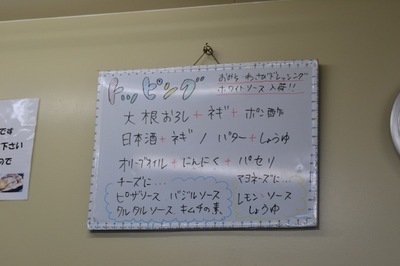 トッピング
おから わさびドレッシング
ホワイトソース 入荷!!
大根おろし + ネギ + ポン酢
日本酒 + ネギ / バター + しょうゆ
オリーブオイル + にんにく + パセリ
チーズに...
ピザソース バジルソース
タルタルソース キムチの素
マヨネーズに...
レモン・ソース
しょうゆ
です
下さい
ので